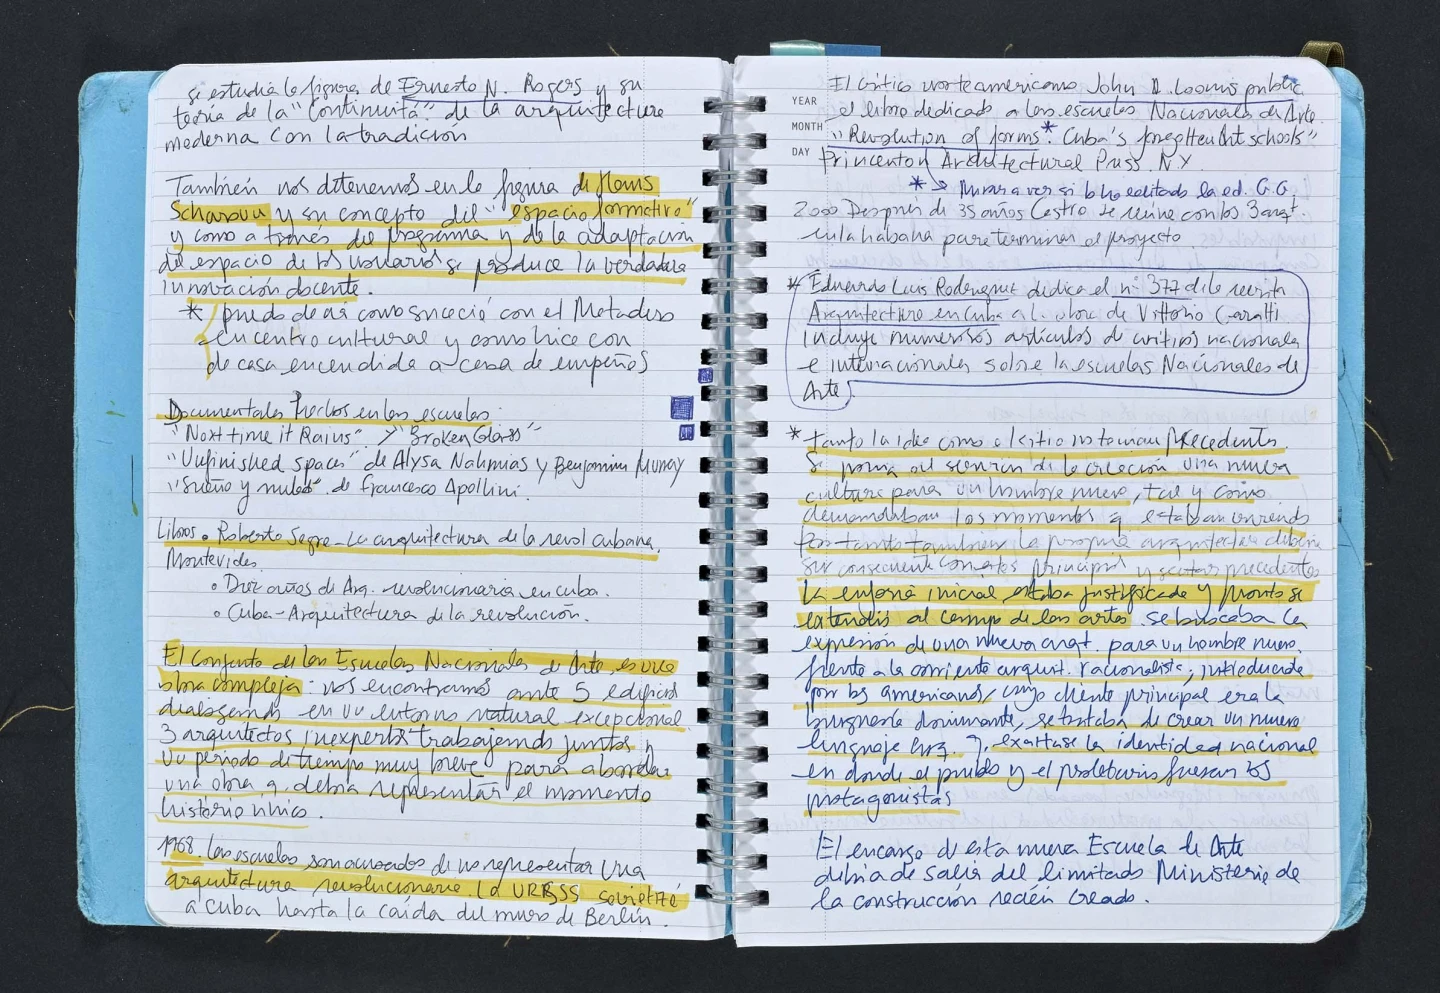 se estudia la figura de Ernesto N. Rogers y su
teoría de la "Continuità" de la arquitectura
moderna con la tradición
También nos detenemos en la figura de Hans
Scharoun y su concepto del "espacio formativo"
y como a través del programa y de la adaptación
del espacio de los usuarios se produce la verdadera
innovación docente.
* puedo decir como suceció con el Matadero
en centro cultural y como hice con
de casa encendida a casa de empeños
Documentales hechos en las escuelas:
"Next time it Rains". y "Broken Glass"
"Unfinished spaces" de Alysa Nahmias y Benjamin Murray
"Sueño y nubes" de Francesco Apollini.
Libros. Roberto Segre - La arquitectura de la revol cubana,
Montevideo.
• Diez años de Arq. revolucionaria en cuba.
• Cuba-Arquitectura de la revolución.
El conjunto de las Escuelas Nacionales de Arte, es una
obra compleja: nos encontramos ante 5 edificios
dialogando en un entorno natural excepcional.
3 arquitectos inexpertos trabajando juntos y
un período de tiempo muy breve para abordar
una obra q. debía representar el momento
histórico único.
1968. Las escuelas son acusadas de no representar una
arquitectura revolucionaria. La URSS sovietizó
a Cuba hasta la caída del muro de Berlín.
El crítico norteamericano John A. Loomis publica
YEAR
el libro dedicado a las escuelas Nacionales de Arte.
MONTH
"Revolution of forms* Cuba's forgotten Art schools"
DAY
Princenton Architectural Press N.Y
* → Mirar a ver si lo ha editado la ed. G.G.
2000 Después de 35 años Castro se reúne con los 3 arqt.
en la habana para terminar el proyecto
* Eduardo Luis Rodriguez dedica el nº 377 de la revista
Arquitectura en Cuba a la obra de Vittorio Garatti
incluye numerosos artículos de críticos nacionales
e internacionales sobre las escuelas Nacionales de
Arte.
* Tanto la idea como el sitio no tenían precedentes.
Se ponía al servicio de la creación una nueva
cultura para un hombre nuevo, tal y como
demandaban los momentos q estaban viviendo
Por tanto también la propia arquitectura debería
ser consecuente con estos principios y sentar precedentes
La euforia inicial estaba justificada y pronto se
extendió al campo de las artes. se buscaba la
expresión de una nueva arqt. para un hombre nuevo.
frente a la corriente arquit. racionalista, introducida
por los americanos, cuyo cliente principal era la
burguesía dominante, se trataba de crear un nuevo
lenguaje arq. q. exaltase la identidad nacional
en donde el pueblo y el proletario fuesen los
protagonistas
El encargo de esta nueva Escuela de Arte
debía de salir del limitado Ministerio de
la construcción recién creado.